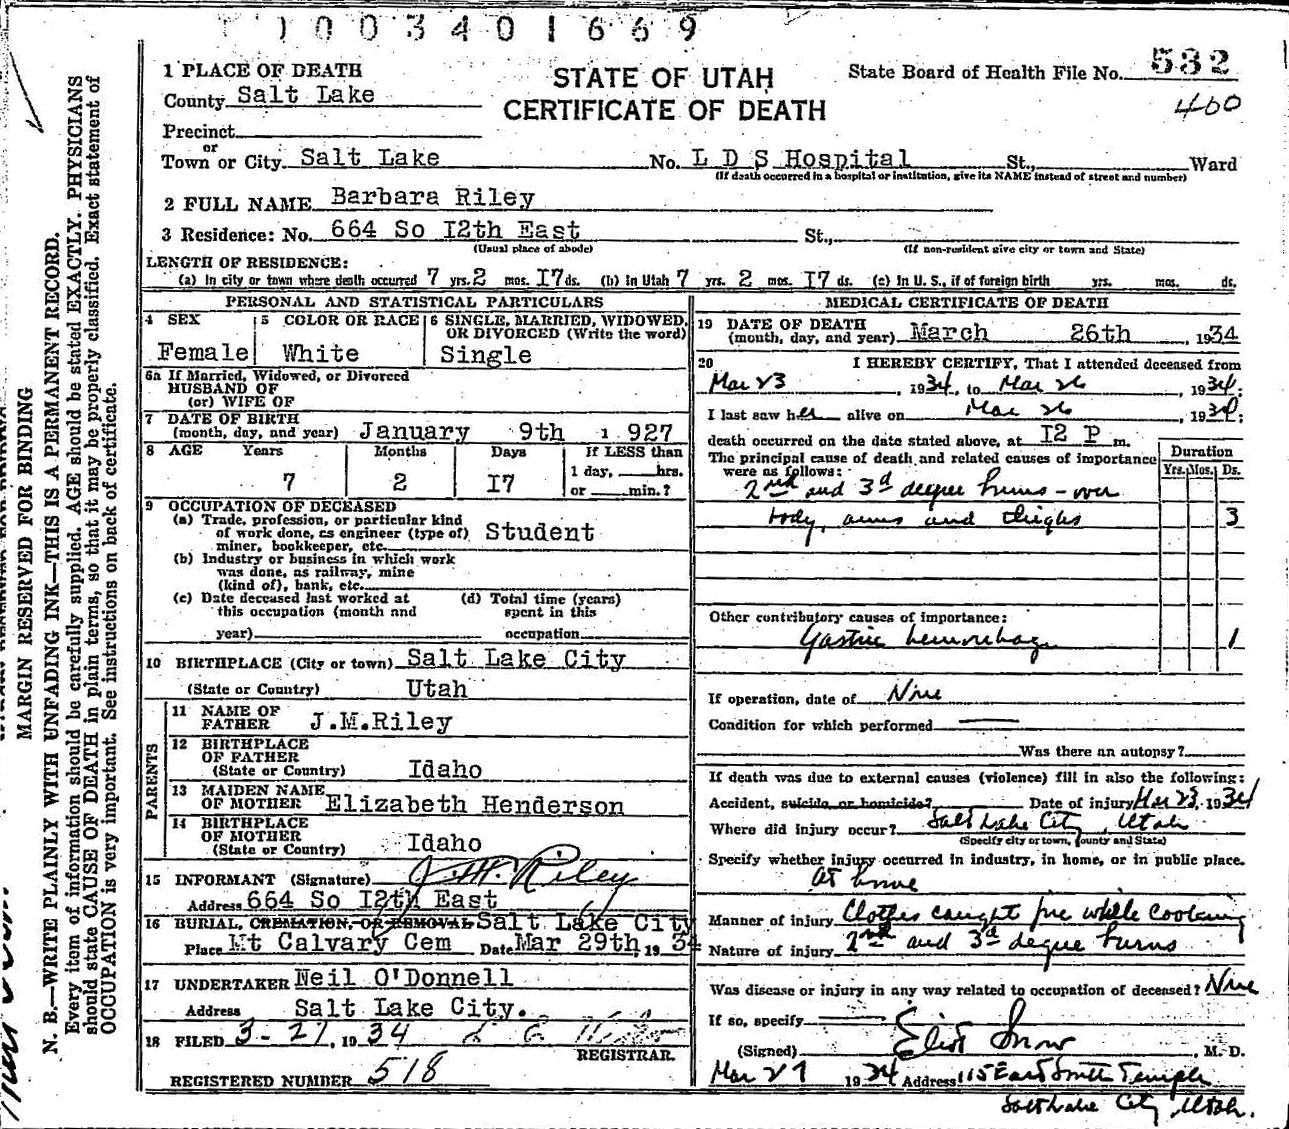 1003401669
1 PLACE OF DEATH
STATE OF UTAH
CERTIFICATE OF DEATH
State Board of Health File No. 532
400
County Salt Lake
Precinct
or
Town or City Salt Lake No. L D S Hospital St., Ward
(If death occurred in a hospital or institution, give its NAME instead of street and number)
2 FULL NAME Barbara Riley
3 Residence: No. 664 So I2th East St.,
(Usual place of abode) (If non-resident give city or town and State)
LENGTH OF RESIDENCE:
(a) In city or town where death occurred 7 yrs. 2 mos. I7 ds. (b) In Utah 7 yrs. 2 mos. I7 ds. (c) In U. S., if of foreign birth yrs. mos. ds.
PERSONAL AND STATISTICAL PARTICULARS
4 SEX Female
5 COLOR OR RACE White
6 SINGLE, MARRIED, WIDOWED, OR DIVORCED (Write the word) Single
6a If Married, Widowed, or Divorced
HUSBAND OF
(or) WIFE OF
7 DATE OF BIRTH
(month, day, and year) January 9th 1927
8 AGE Years Months Days If LESS than
7 2 I7 1 day, hrs.
or min.?
9 OCCUPATION OF DECEASED
(a) Trade, profession, or particular kind
of work done, as engineer (type of) Student
miner, bookkeeper, etc.
(b) Industry or business in which work
was done, as railway, mine
(kind of), bank, etc.
(c) Date deceased last worked at (d) Total time (years)
this occupation (month and spent in this
year) occupation
10 BIRTHPLACE (City or town) Salt Lake City
(State or Country) Utah
PARENTS
11 NAME OF
FATHER J.M.Riley
12 BIRTHPLACE
OF FATHER
(State or Country) Idaho
13 MAIDEN NAME
OF MOTHER Elizabeth Henderson
14 BIRTHPLACE
OF MOTHER
(State or Country) Idaho
15 INFORMANT (Signature) J. M. Riley
Address 664 So I2th East
16 BURIAL, CREMATION, OR REMOVAL Salt Lake City
Place Mt Calvary Cem Date Mar 29th, 1934
17 UNDERTAKER Neil O'Donnell
Address Salt Lake City.
18 FILED 3-27, 1934
REGISTRAR.
REGISTERED NUMBER 518
MEDICAL CERTIFICATE OF DEATH
19 DATE OF DEATH
(month, day, and year) March 26th, 1934
20 I HEREBY CERTIFY, That I attended deceased from
Mar 23, 1934, to Mar 26, 1934;
I last saw her alive on Mar 26, 1934;
death occurred on the date stated above, at I2 P m.
The principal cause of death and related causes of importance
were as follows:
Duration
Yrs. Mos. Ds.
2nd and 3d degree burns - over
body, arms and thighs 3
Other contributory causes of importance:
Gastric hemorrhage 1
If operation, date of None
Condition for which performed
Was there an autopsy?
If death was due to external causes (violence) fill in also the following:
Accident, suicide, or homicide? Date of injury Mar 23, 1934
Where did injury occur? Salt Lake City, Utah
(Specify city or town, county and State)
Specify whether injury occurred in industry, in home, or in public place.
At home
Manner of injury Clothes caught fire while cooking
Nature of injury 2nd and 3d degree burns
Was disease or injury in any way related to occupation of deceased? None
If so, specify
(Signed) Eliot Snow, M. D.
Mar 27 1934 Address 115 East South Temple
Salt Lake City, Utah.
MARGIN RESERVED FOR BINDING
N. B.—WRITE PLAINLY WITH UNFADING INK—THIS IS A PERMANENT RECORD.
Every item of information should be carefully supplied. AGE should be stated EXACTLY. PHYSICIANS
should state CAUSE OF DEATH in plain terms, so that it may be properly classified. Exact statement of
OCCUPATION is very important. See instructions on back of certificate.